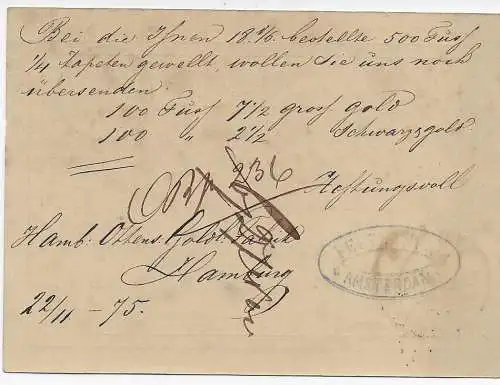 Bei die Ihnen 18 9/6. bestellte 500 Fuß
1/4 Tapeten gewellt, wollen Sie uns noch
übersenden:
100 Fuß 7 1/2 groß gold
100 " 2 1/2 Schwarzgold.
936
Achtungsvoll
Hamb: Ottens. Goldl. Fabrik
Hamburg
22/11 - 75.
AMSTERDAM